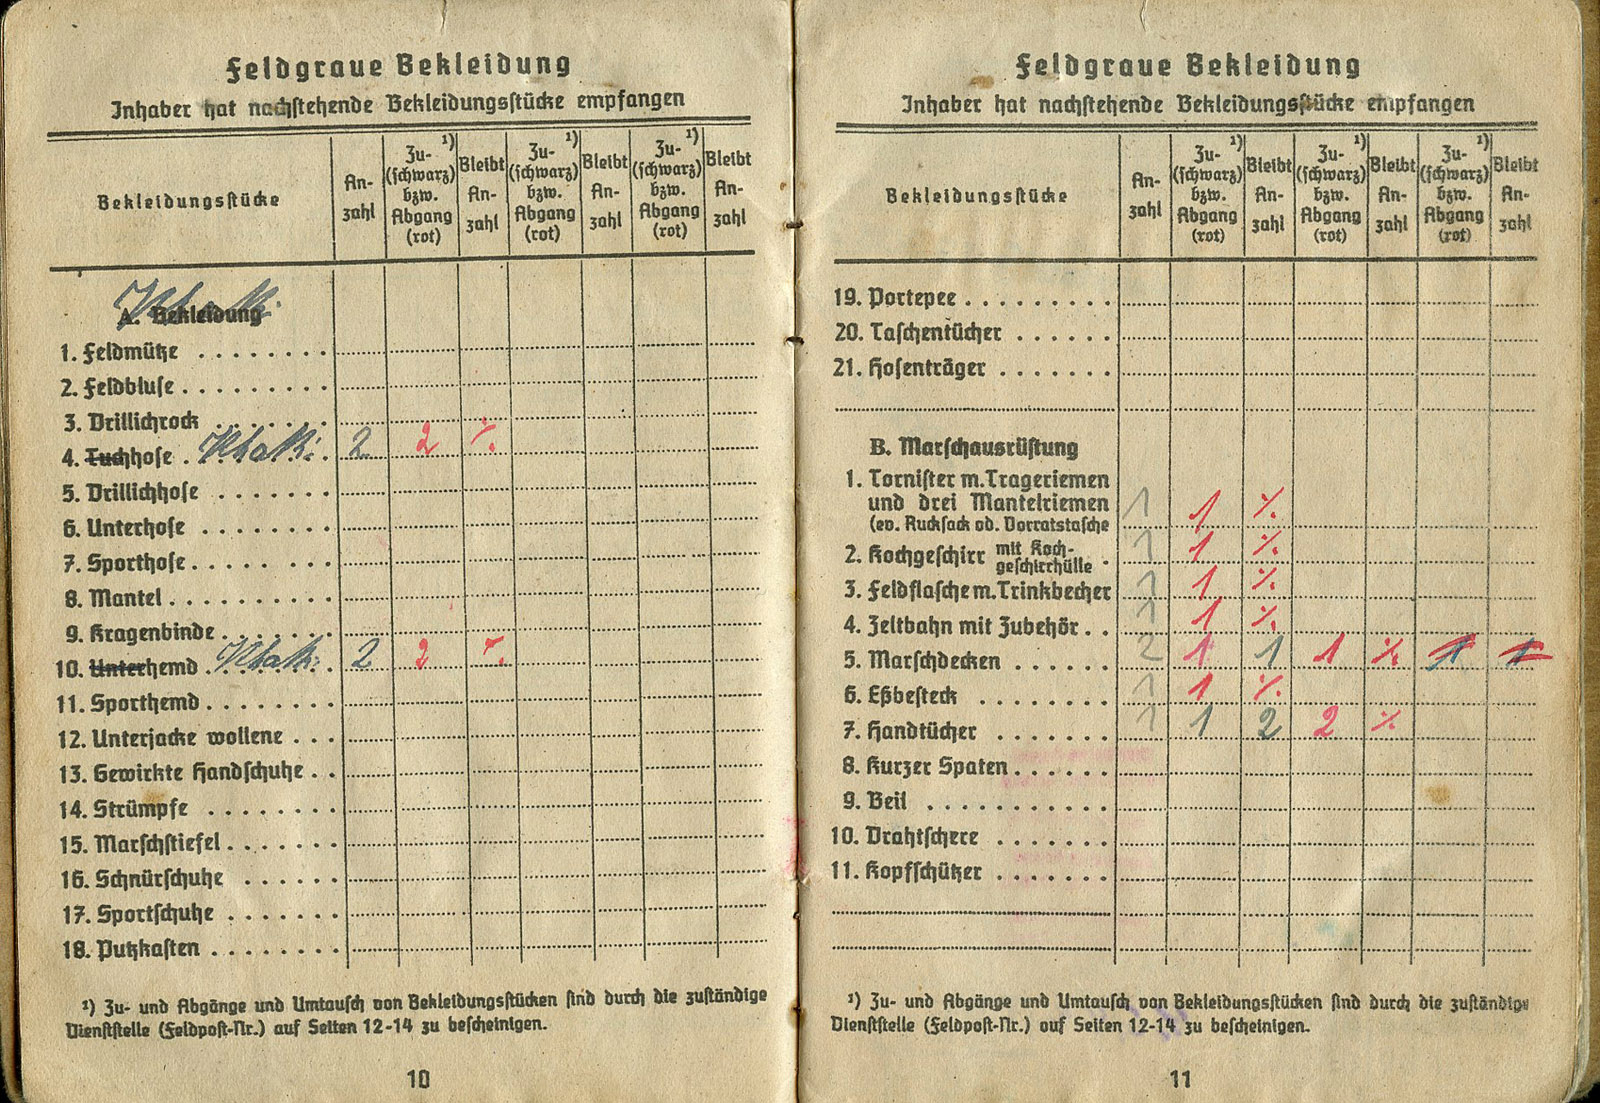 Feldgraue Bekleidung
Inhaber hat nachstehende Bekleidungsstücke empfangen
Bekleidungsstücke
An-
zahl
Zu- ¹)
(schwarz)
bzw.
Abgang
(rot)
Bleibt
An-
zahl
Zu- ¹)
(schwarz)
bzw.
Abgang
(rot)
Bleibt
An-
zahl
Zu- ¹)
(schwarz)
bzw.
Abgang
(rot)
Bleibt
An-
zahl
Khaki
A. Bekleidung
1. Feldmütze . . . . . . . .
2. Feldbluse . . . . . . . . .
3. Drillichrock . . . . . . .
4. Tuchhose . Khaki . 2 2 ٪
5. Drillichhose . . . . . . .
6. Unterhose . . . . . . . .
7. Sporthose . . . . . . . .
8. Mantel . . . . . . . . . .
9. Kragenbinde . . . . . . .
10. Unterhemd . Khaki . 2 2 ٪
11. Sporthemd . . . . . . . .
12. Unterjacke wollene . . .
13. Gewirkte Handschuhe . .
14. Strümpfe . . . . . . . .
15. Marschstiefel . . . . . . .
16. Schnürschuhe . . . . . .
17. Sportschuhe . . . . . . .
18. Putzkasten . . . . . . . .
¹) Zu- und Abgänge und Umtausch von Bekleidungsstücken sind durch die zuständige
Dienststelle (Feldpost-Nr.) auf Seiten 12-14 zu bescheinigen.
10
Feldgraue Bekleidung
Inhaber hat nachstehende Bekleidungsstücke empfangen
Bekleidungsstücke
An-
zahl
Zu- ¹)
(schwarz)
bzw.
Abgang
(rot)
Bleibt
An-
zahl
Zu- ¹)
(schwarz)
bzw.
Abgang
(rot)
Bleibt
An-
zahl
Zu- ¹)
(schwarz)
bzw.
Abgang
(rot)
Bleibt
An-
zahl
19. Portepee . . . . . . . . .
20. Taschentücher . . . . . .
21. Hosenträger . . . . . . .
B. Marschausrüstung
1. Tornister m. Trageriemen
und drei Mantelriemen 1 1 ٪
(ev. Rucksack od. Vorratstasche
2. Kochgeschirr mit Koch-
geschirrhülle . 1 1 ٪
3. Feldflasche m. Trinkbecher 1 1 ٪
4. Zeltbahn mit Zubehör . . 1 1 ٪
5. Marschdecken . . . . . . 2 1 1 1 ٪ 1 1
6. Eßbesteck . . . . . . . . 1 1 ٪
7. Handtücher . . . . . . . 1 1 2 2 ٪
8. Kurzer Spaten . . . . . .
9. Beil . . . . . . . . . . .
10. Drahtschere . . . . . . .
11. Kopfschützer . . . . . . .
¹) Zu- und Abgänge und Umtausch von Bekleidungsstücken sind durch die zuständige
Dienststelle (Feldpost-Nr.) auf Seiten 12-14 zu bescheinigen.
11